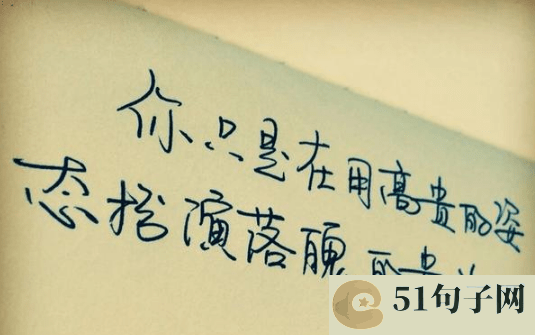 你只是在用高贵的姿
态扮演落魄的贵
51句子网